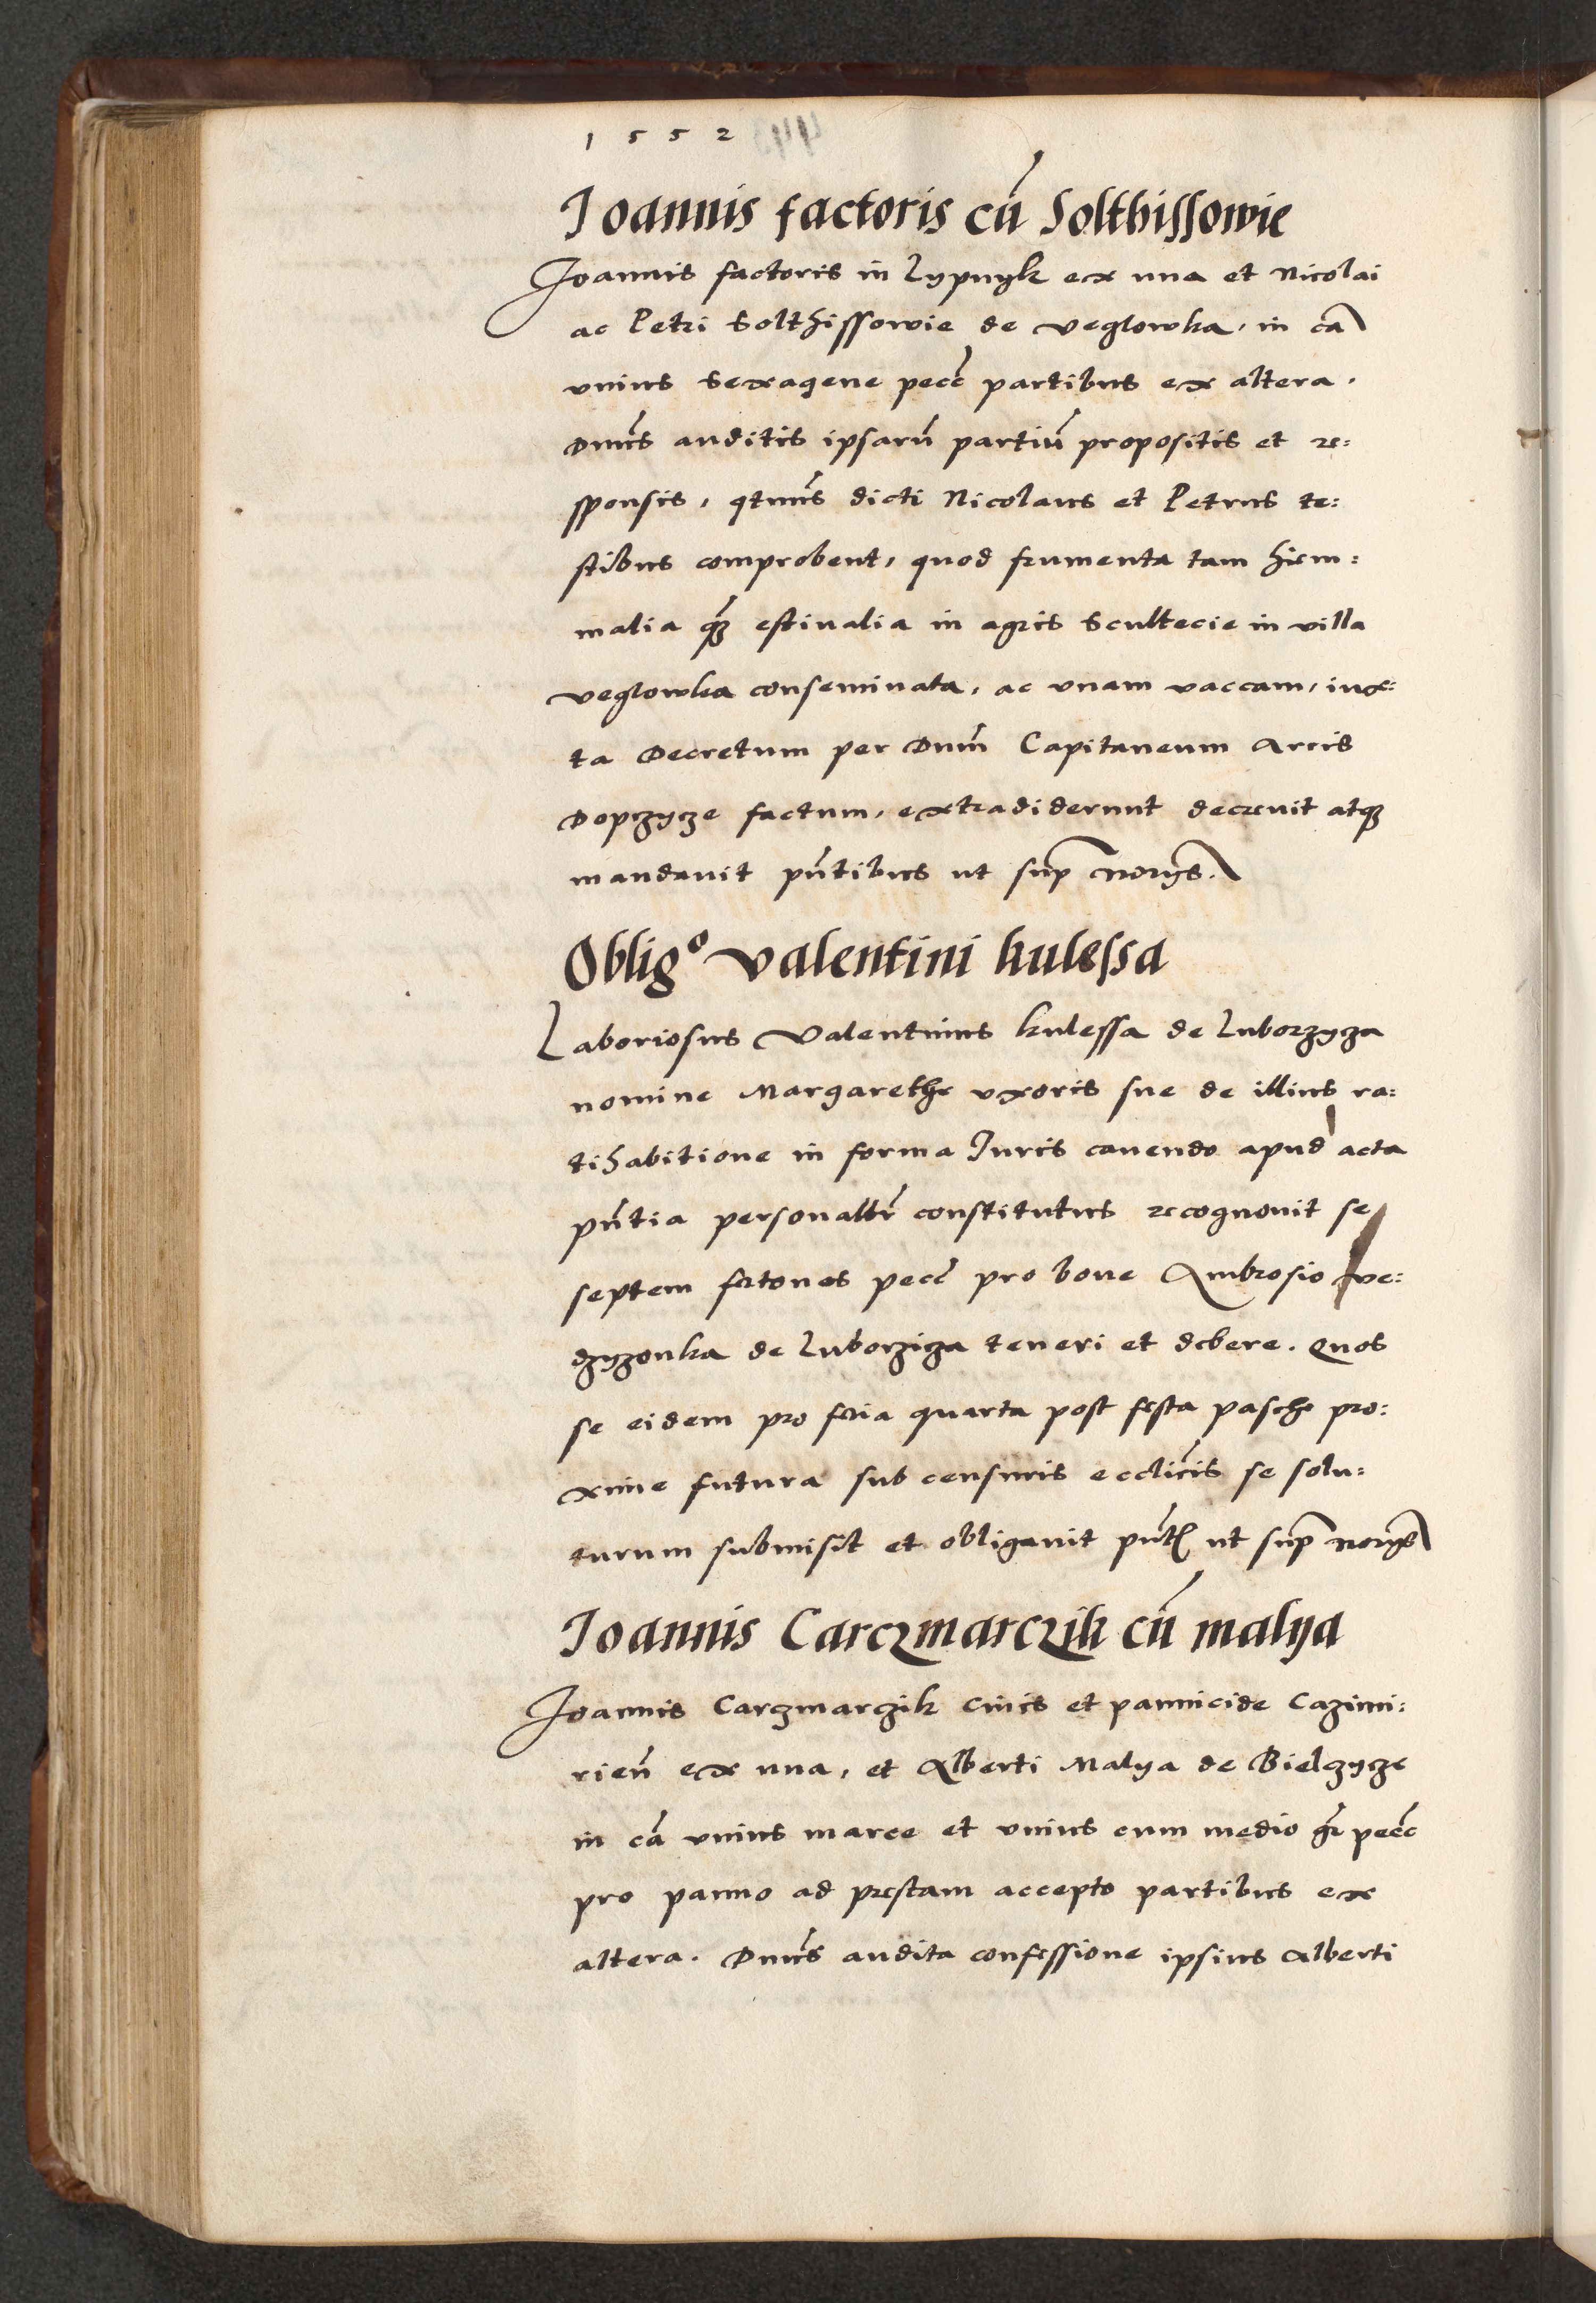 1552
Ioannis factoris cū Solthissowie
Ioannis factoris in Lypnyk ex una et Nicolai
ac Petri Solthissowie de Veglowka, in cā
vnius sexagene pecc̄ partibus ex altera.
Dnus auditis ipsarū partiū propositis et re:
sponsis, qtnus dicti Nicolaus et Petrus te:
stibus comprobent, quod frumenta tam hiem:
malia qꝫ estiualia in agris scultecie in villa
Veglowka conseminata, ac vnam vaccam, iux:
ta Decretum per Dnm̄ Capitaneum Arcis
Dopczycze factum, extradiderunt decreuit atqꝫ
mandauit pn̄tibus ut sup norijs.
Obligº Valentini kulessa
Laboriosus Valentinus kulessa de Luborzycza
nomine Margarethe vxoris sue de illius ra:
tihabitione in forma Iuris cauendo apud acta
pn̄tia personalitr̄ constitutus recognouit se
septem fertones pecc̄ pro boue Ambrosio we:
dzyzonka de Luborzicza teneri et debere. Quos
se eidem pro feria quarta post festa pasche pro:
xime futura sub censuris eccliĉis se solu:
turum submisit et obligauit pn̄t ut sup norijs
Ioannis Carczmarczik cū malya
Ioannis Carczmarczik Ciuis et pannicide Cazimi:
rien̄ ex una, et Alberti Malya de Bielczycze
in cā vnius marce et vnius cum medio gr̄ pecc̄
pro panno ad prestam accepto partibus ex
altera. Dnus audita confessione ipsius Alberti